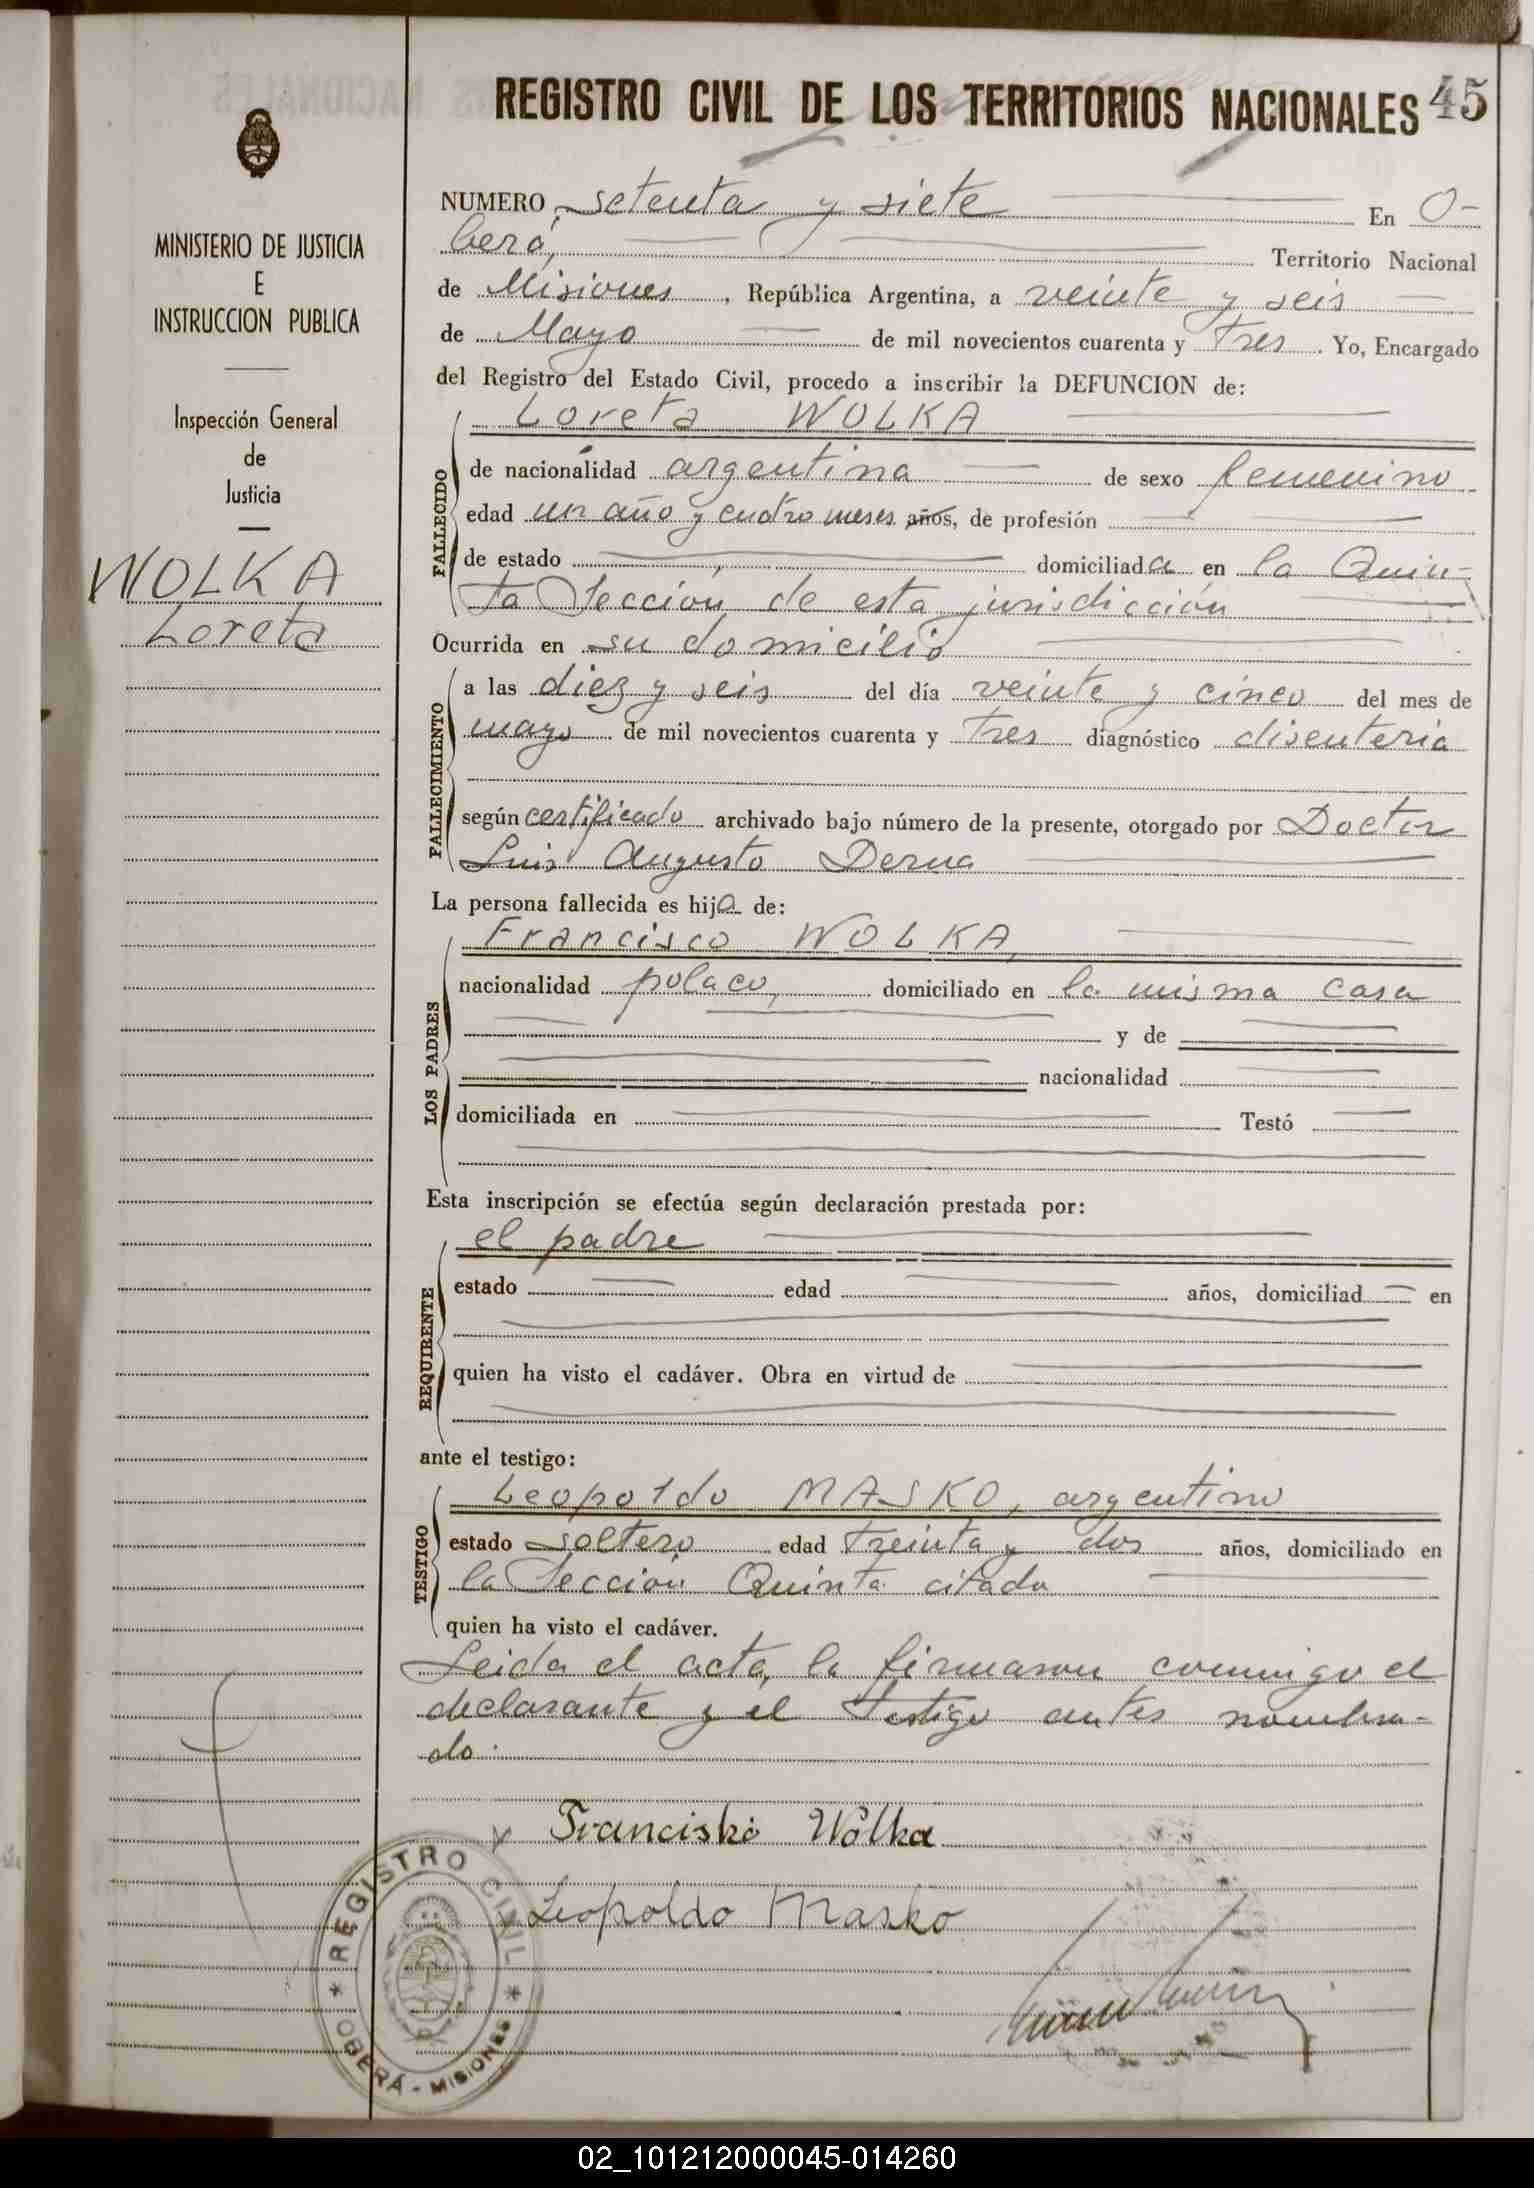 REGISTRO CIVIL DE LOS TERRITORIOS NACIONALES 45
MINISTERIO DE JUSTICIA
E
INSTRUCCION PUBLICA
Inspección General
de
Justicia
WOLKA
Loreta
NUMERO setenta y siete En O-
berá, Territorio Nacional
de Misiones, República Argentina, a veinte y seis
de Mayo de mil novecientos cuarenta y tres. Yo, Encargado
del Registro del Estado Civil, procedo a inscribir la DEFUNCION de:
FALLECIDO
Loreta WOLKA
de nacionalidad argentina de sexo femenino
edad un año y cuatro meses años, de profesión
de estado domiciliada en la Quin-
ta Sección de esta jurisdicción
Ocurrida en su domicilio
FALLECIMIENTO
a las diez y seis del día veinte y cinco del mes de
mayo de mil novecientos cuarenta y tres diagnóstico disentería
según certificado archivado bajo número de la presente, otorgado por Doctor
Luis Augusto Derna
La persona fallecida es hija de:
LOS PADRES
Francisco WOLKA,
nacionalidad polaco, domiciliado en la misma casa
y de
nacionalidad
domiciliada en Testó
Esta inscripción se efectúa según declaración prestada por:
REQUIRENTE
el padre
estado edad años, domiciliad en
quien ha visto el cadáver. Obra en virtud de
ante el testigo:
TESTIGO
Leopoldo MASKO, argentino
estado soltero edad treinta y dos años, domiciliado en
la Sección Quinta citada
quien ha visto el cadáver.
Leida el acta, la firmaron conmigo el
declarante y el testigo antes nombra-
do.
Franciski Wolka
Leopoldo Masko
REGISTRO CIVIL
OBERÁ - MISIONES
02_101212000045-014260